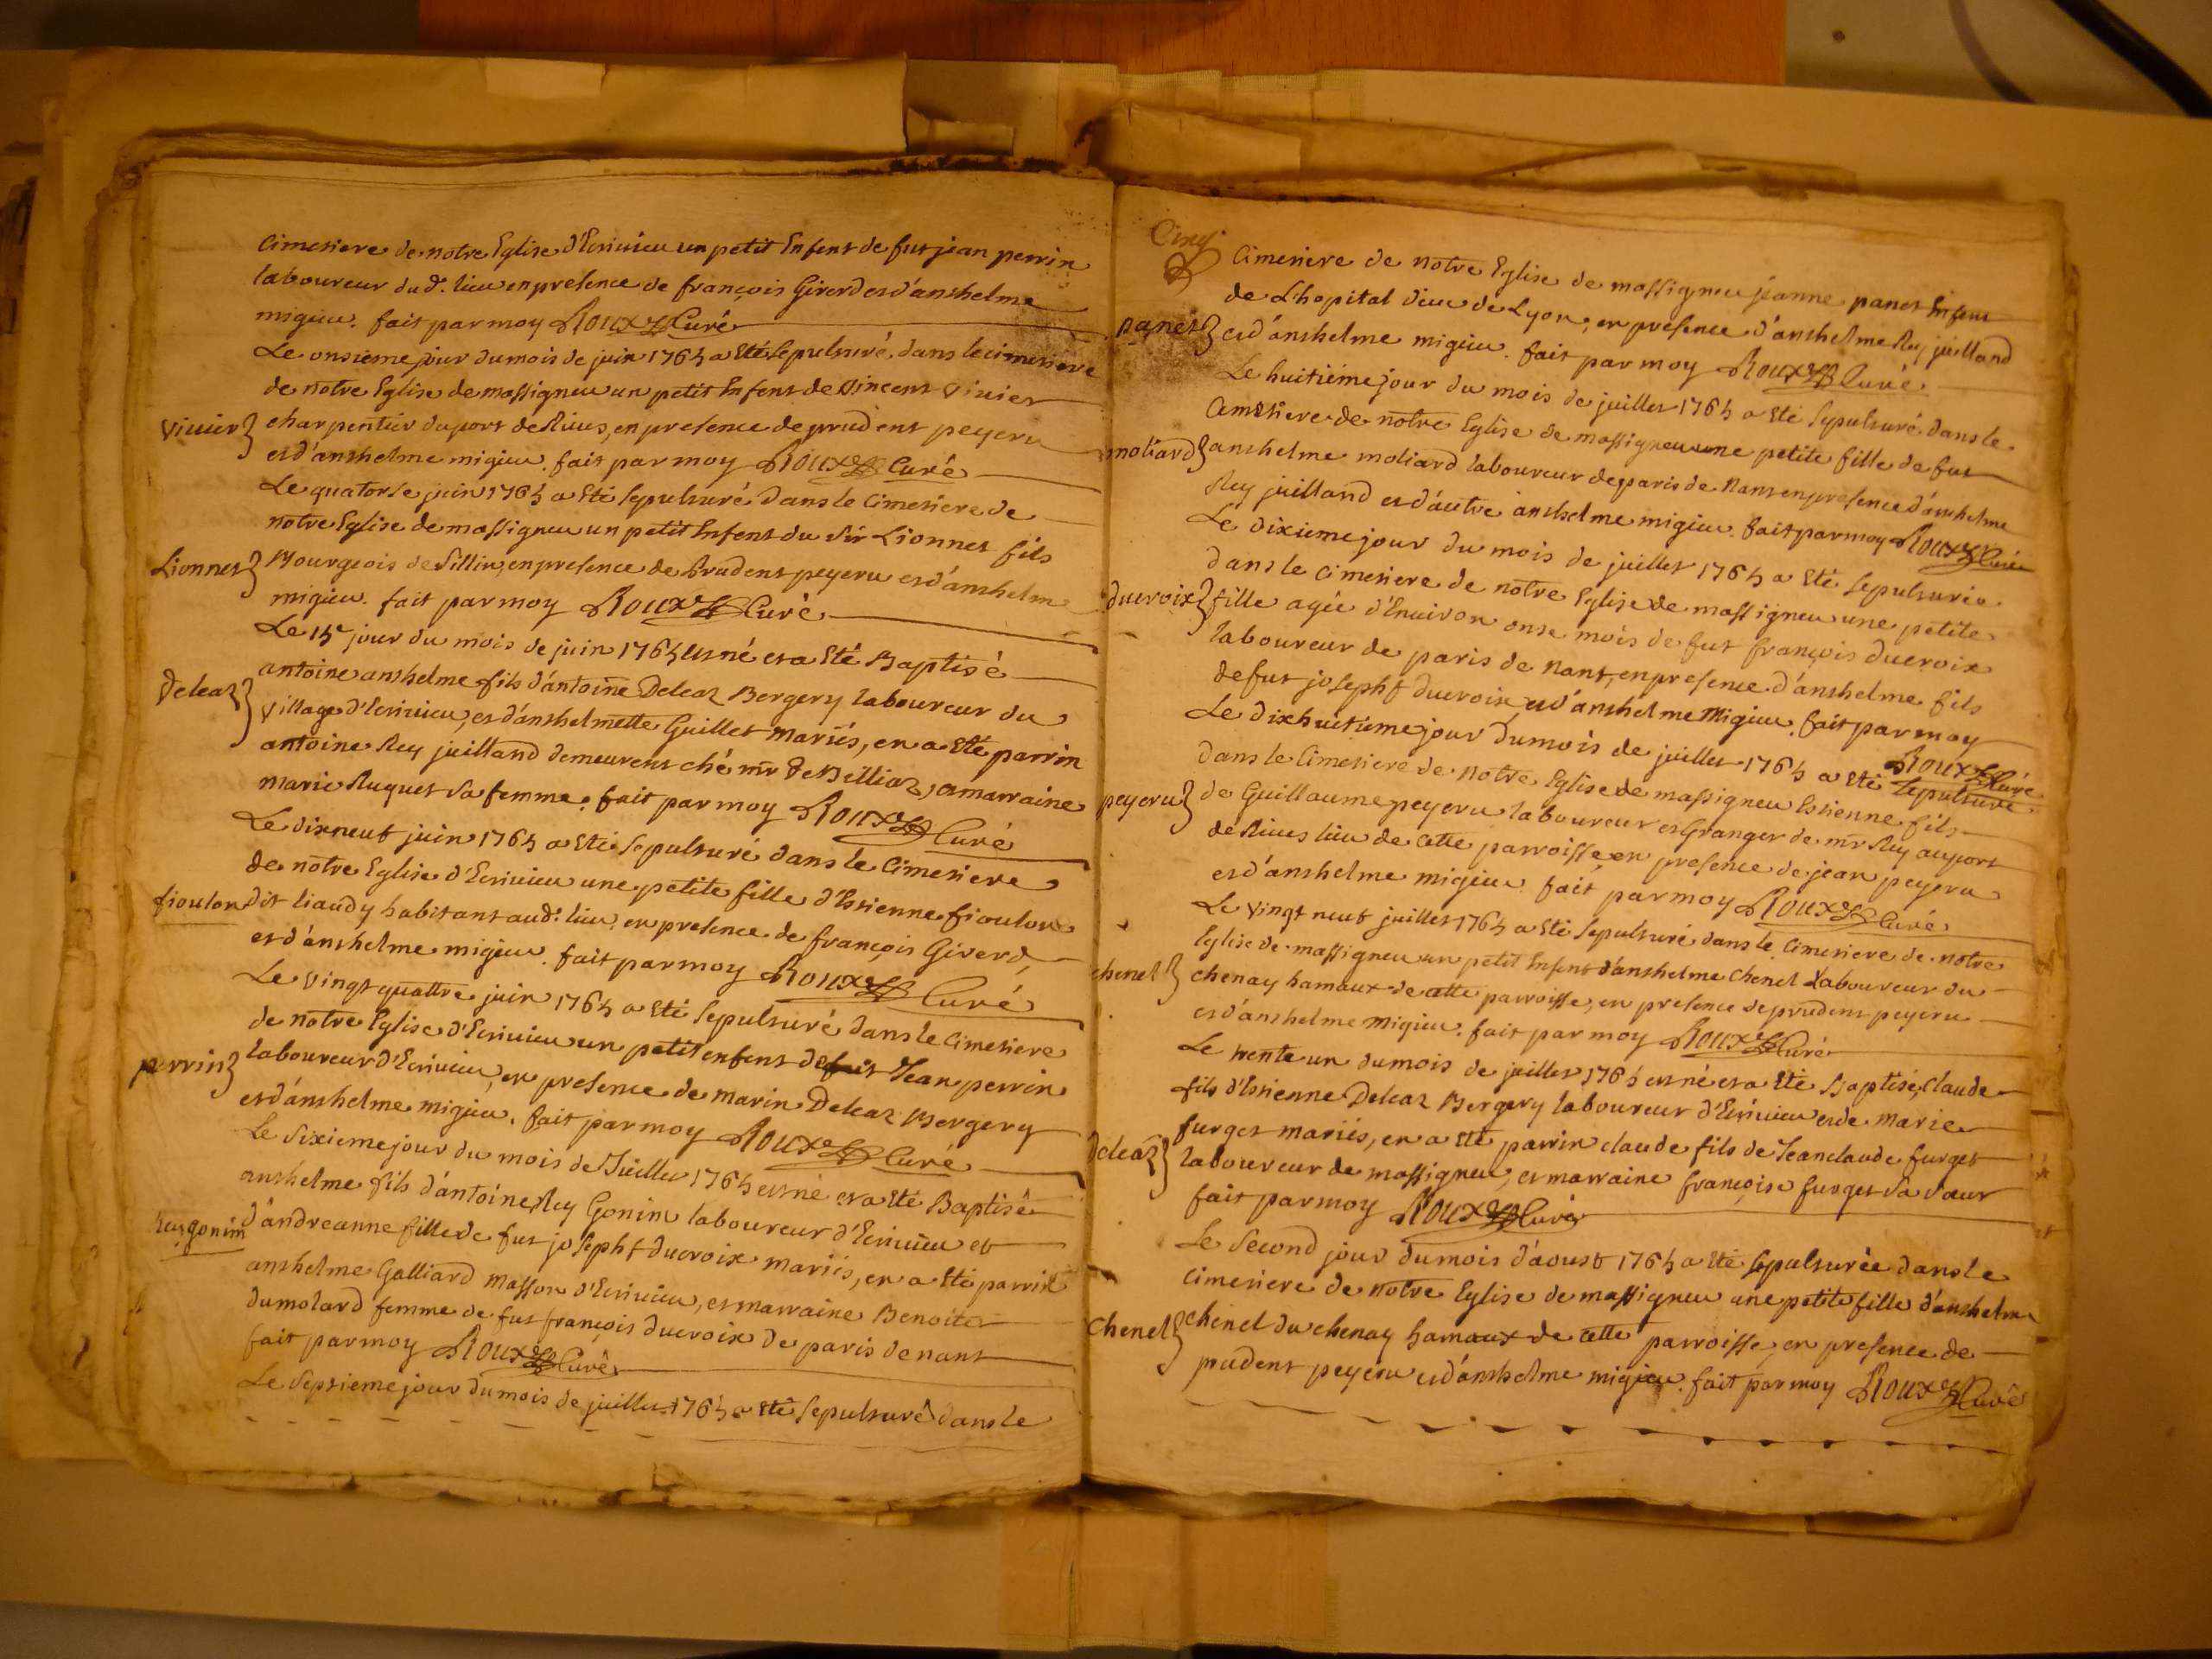 Cimetiere de notre Eglise d'Ecrivieu un petit Enfent de fut jean perrin
laboureur dud. lieu en presence de françois Girerd et d'anthelme
migieu. fait par moy Roux Curé
Le onsieme jour du mois de juin 1765 a Eté Sepulturé dans le cimetiere
de notre Eglise de massigneu un petit Enfent de Vincent Vivier
Vivier charpentier du port de Rives, en presence de prudent peyeru
et d'anthelme migieu. fait par moy Roux Curé
Le quatorse juin 1765 a Eté Sepulturé dans le Cimetiere de
notre Eglise de massigneu un petit Enfent du Sir Lionnet fils
Lionnet Bourgeois de Sillin, en presence de Prudent peyeru et d'anthelme
migieu. fait par moy Roux Curé
Le 15e jour du mois de juin 1765 est né et a Eté Baptisé
antoine anthelme fils d'antoine Deleaz Bergery laboureur du
Deleaz village d'Ecrivieu, et d'anthelmette Guillet mariés, en a Eté parrin
antoine Rey juilland demeurent ché mr De Billiaz, et marraine
marie Ruguet Sa femme. fait par moy Roux Curé
Le dixneuf juin 1765 a Eté Sepulturé dans le Cimetiere
de notre Eglise d'Ecrivieu une petite fille d'Estienne fioulon
fioulon dit liaudy habitant aud. lieu, en presence de françois Girerd,
et d'anthelme migieu. fait par moy Roux Curé
Le vingt quattre juin 1765 a Eté Sepulturé dans le Cimetiere
de notre Eglise d'Ecrivieu un petit enfent de fut Jean perrin
perrin laboureur d'Ecrivieu, en presence de marin Deleaz Bergery
et d'anthelme migieu. fait par moy Roux Curé
Le Sixieme jour du mois de Juillet 1765 est né et a Eté Baptisé
anthelme fils d'antoine Rey Gonin laboureur d'Ecrivieu et
Rey gonin d'andreanne fille de fut joseph f ducroix mariés, en a Eté parrin
anthelme Galliard masson d'Ecrivieu, et marraine Benoite
dumolard femme de fut françois ducroix de paris de nant
fait par moy Roux Curé
Le Septieme jour du mois de juillet 1765 a Eté Sepulturé dans le
Cinq
Cimetiere de notre Eglise de massigneu jeanne panet Enfent
de L'hopital dieu de Lyon, en presence d'anthelme Rey juilland
panet et d'anthelme migieu. fait par moy Roux Curé
Le huitiéme jour du mois de juillet 1765 a Eté Sepulturé dans le
Cimetiere de notre Eglise de massigneu une petite fille de fut
moliard anthelme moliard laboureur de paris de Nant en presence d'anthelme
Rey juilland et d'autre anthelme migieu. fait par moy Roux Curé
Le dixieme jour du mois de juillet 1765 a Eté Sepulturée
dans le Cimetiere de notre Eglise de massigneu une petite
ducroix fille agée d'Environ onse mois de fut françois ducroix
laboureur de paris de nant, en presence d'anthelme fils
de fut joseph f ducroix et d'anthelme Migieu. fait par moy
Roux Curé
Le dixhuitieme jour du mois de juillet 1765 a Eté Sepulturé
dans le Cimetiere de notre Eglise de massigneu Estienne fils
peyeru de Guillaume peyeru laboureur et Granger de mr Rey au port
de Rives lieu de cette parroisse, en presence de jean peyeru
et d'anthelme migieu. fait par moy Roux Curé
Le vingt neuf juillet 1765 a Eté Sepulturé dans le Cimetiere de notre
Eglise de massigneu un petit Enfent d'anthelme Chenel Laboureur du
chenel chenay hamaux de cette parroisse, en presence de prudent peyeru
et d'anthelme Migieu. fait par moy Roux Curé
Le trente un du mois de juillet 1765 est né et a Eté Baptisé, Claude
fils d'Estienne Deleaz Bergery laboureur d'Ecrivieu et de marie
furget mariés, en a Eté parrin claude fils de Jeanclaude furget
deleaz laboureur de massigneu, et marraine françoise furget Sa Sœur
fait par moy Roux Curé
Le Second jour du mois d'aoust 1765 a Eté Sepulturée dans le
Cimetiere de notre Eglise de massigneu une petite fille d'anthelme
Chenel chenel du chenay hamaux de cette parroisse, en presence de
prudent peyeru et d'anthelme migieu. fait par moy Roux Curé